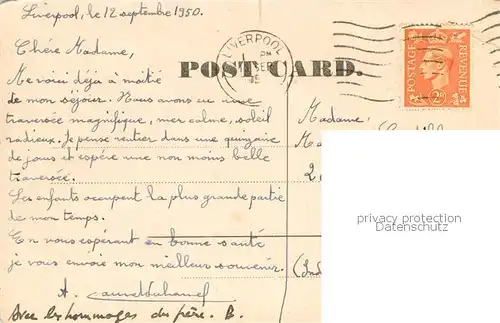 Liverpool, le 12 septembre 1950.
Chère Madame,
LIVERPOOL
PM
SEP
POST CARD.
POSTAGE
REVENUE
2D
Me voici déjà à moitié
de mon séjour. Nous avons eu une
traversée magnifique, mer calme, soleil
radieux. Je pense rentrer dans une quinzaine
de jours et espère une non moins belle
traversée.
Les enfants occupent la plus grande partie
de mon temps.
En vous espérant en bonne santé
je vous envoie mon meilleur souvenir.
A.
Avec les hommages du frère. B.
Madame
privacy protection